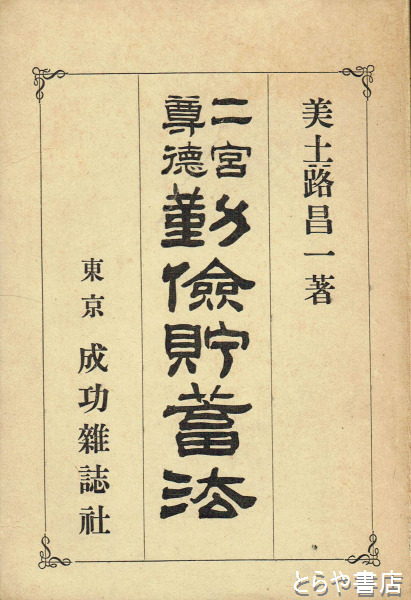 美土路昌一著
二宮
尊德
勤儉貯蓄法
東京 成功雜誌社
とらや書店